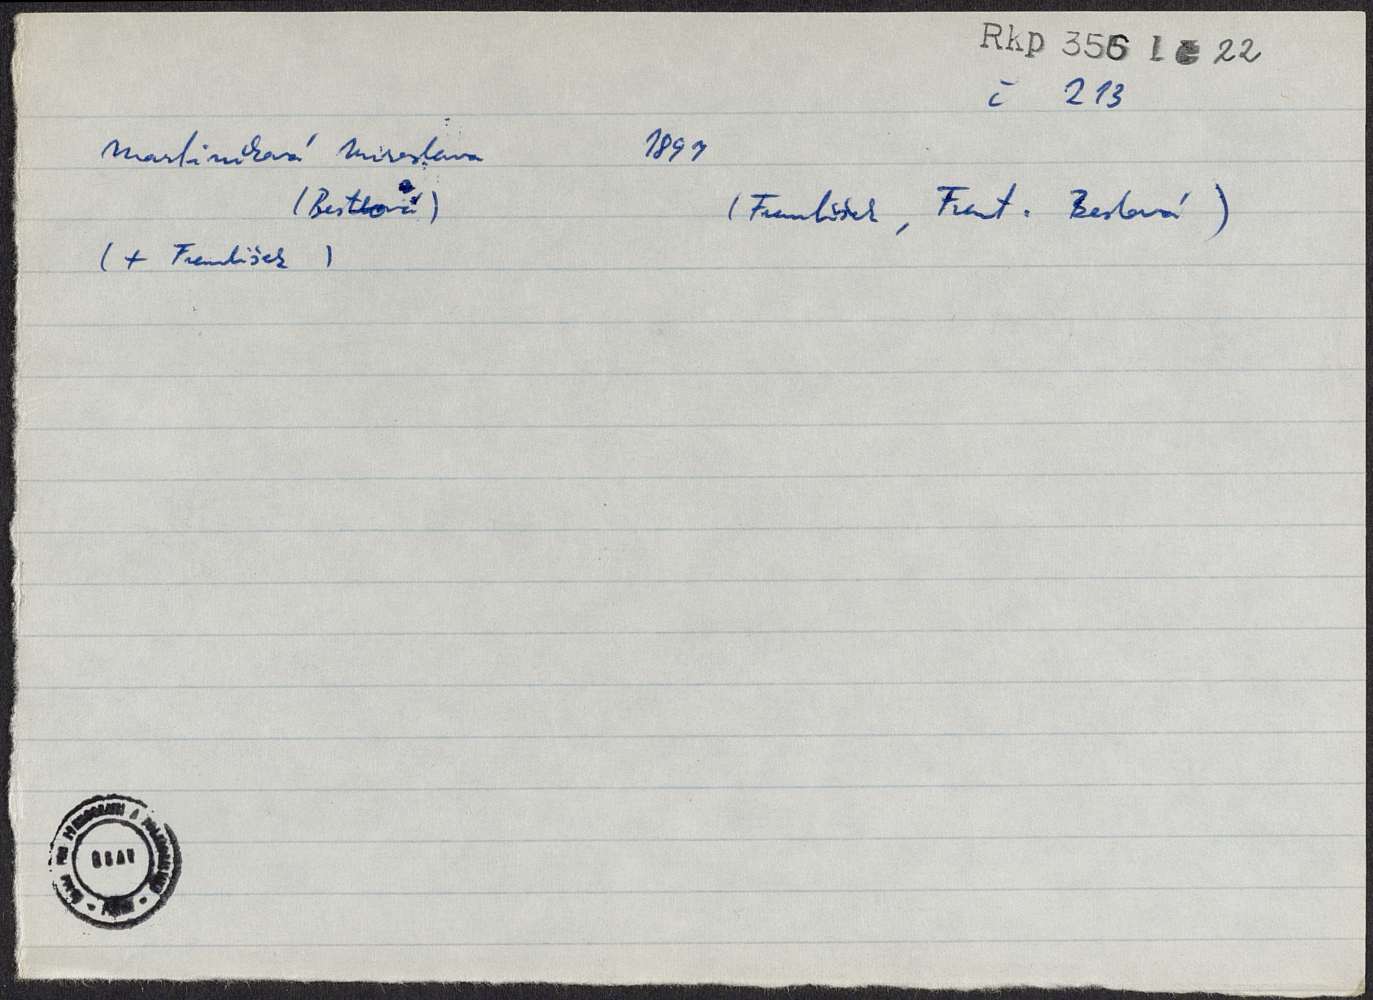 Rkp 356 1 22
č 213
Martiníková Miroslava 1897
(Bestová) (František, Frant. Beslová)
(+ František)
ČSAV